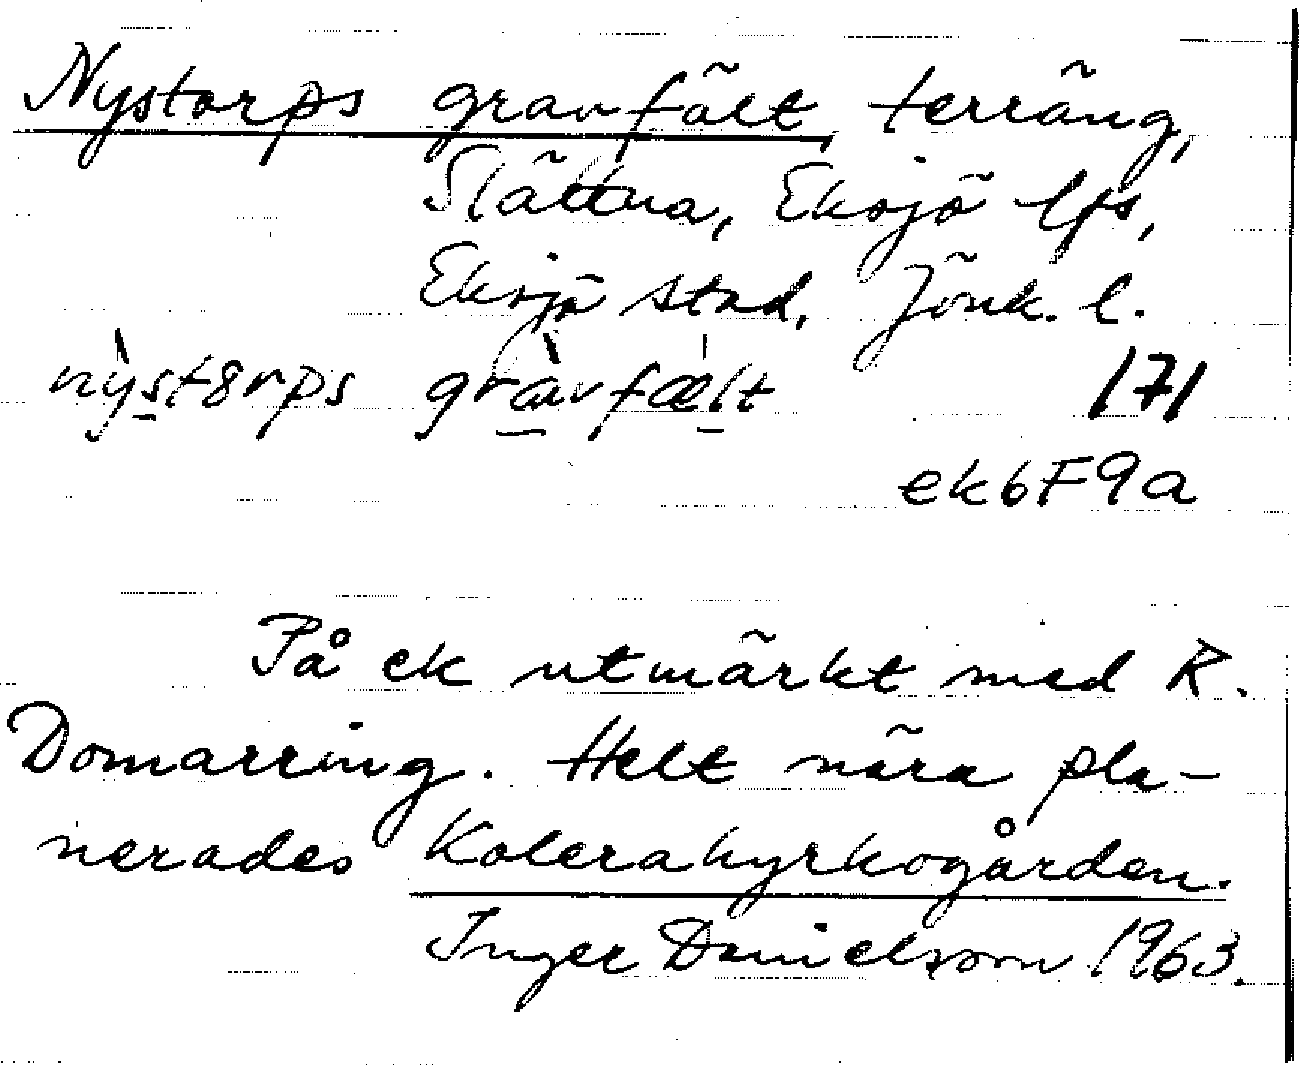 Nystorps gravfält, terräng,
Slättna, Eksjö lfs,
Eksjö stad, Jönk. l.
nỳst8rps gràvfælt 171
ek 6F9a
På ek utmärkt med R.
Domarring. Helt nära pla-
nerades Kolerakyrkogården.
Inger Danielsson 1963.